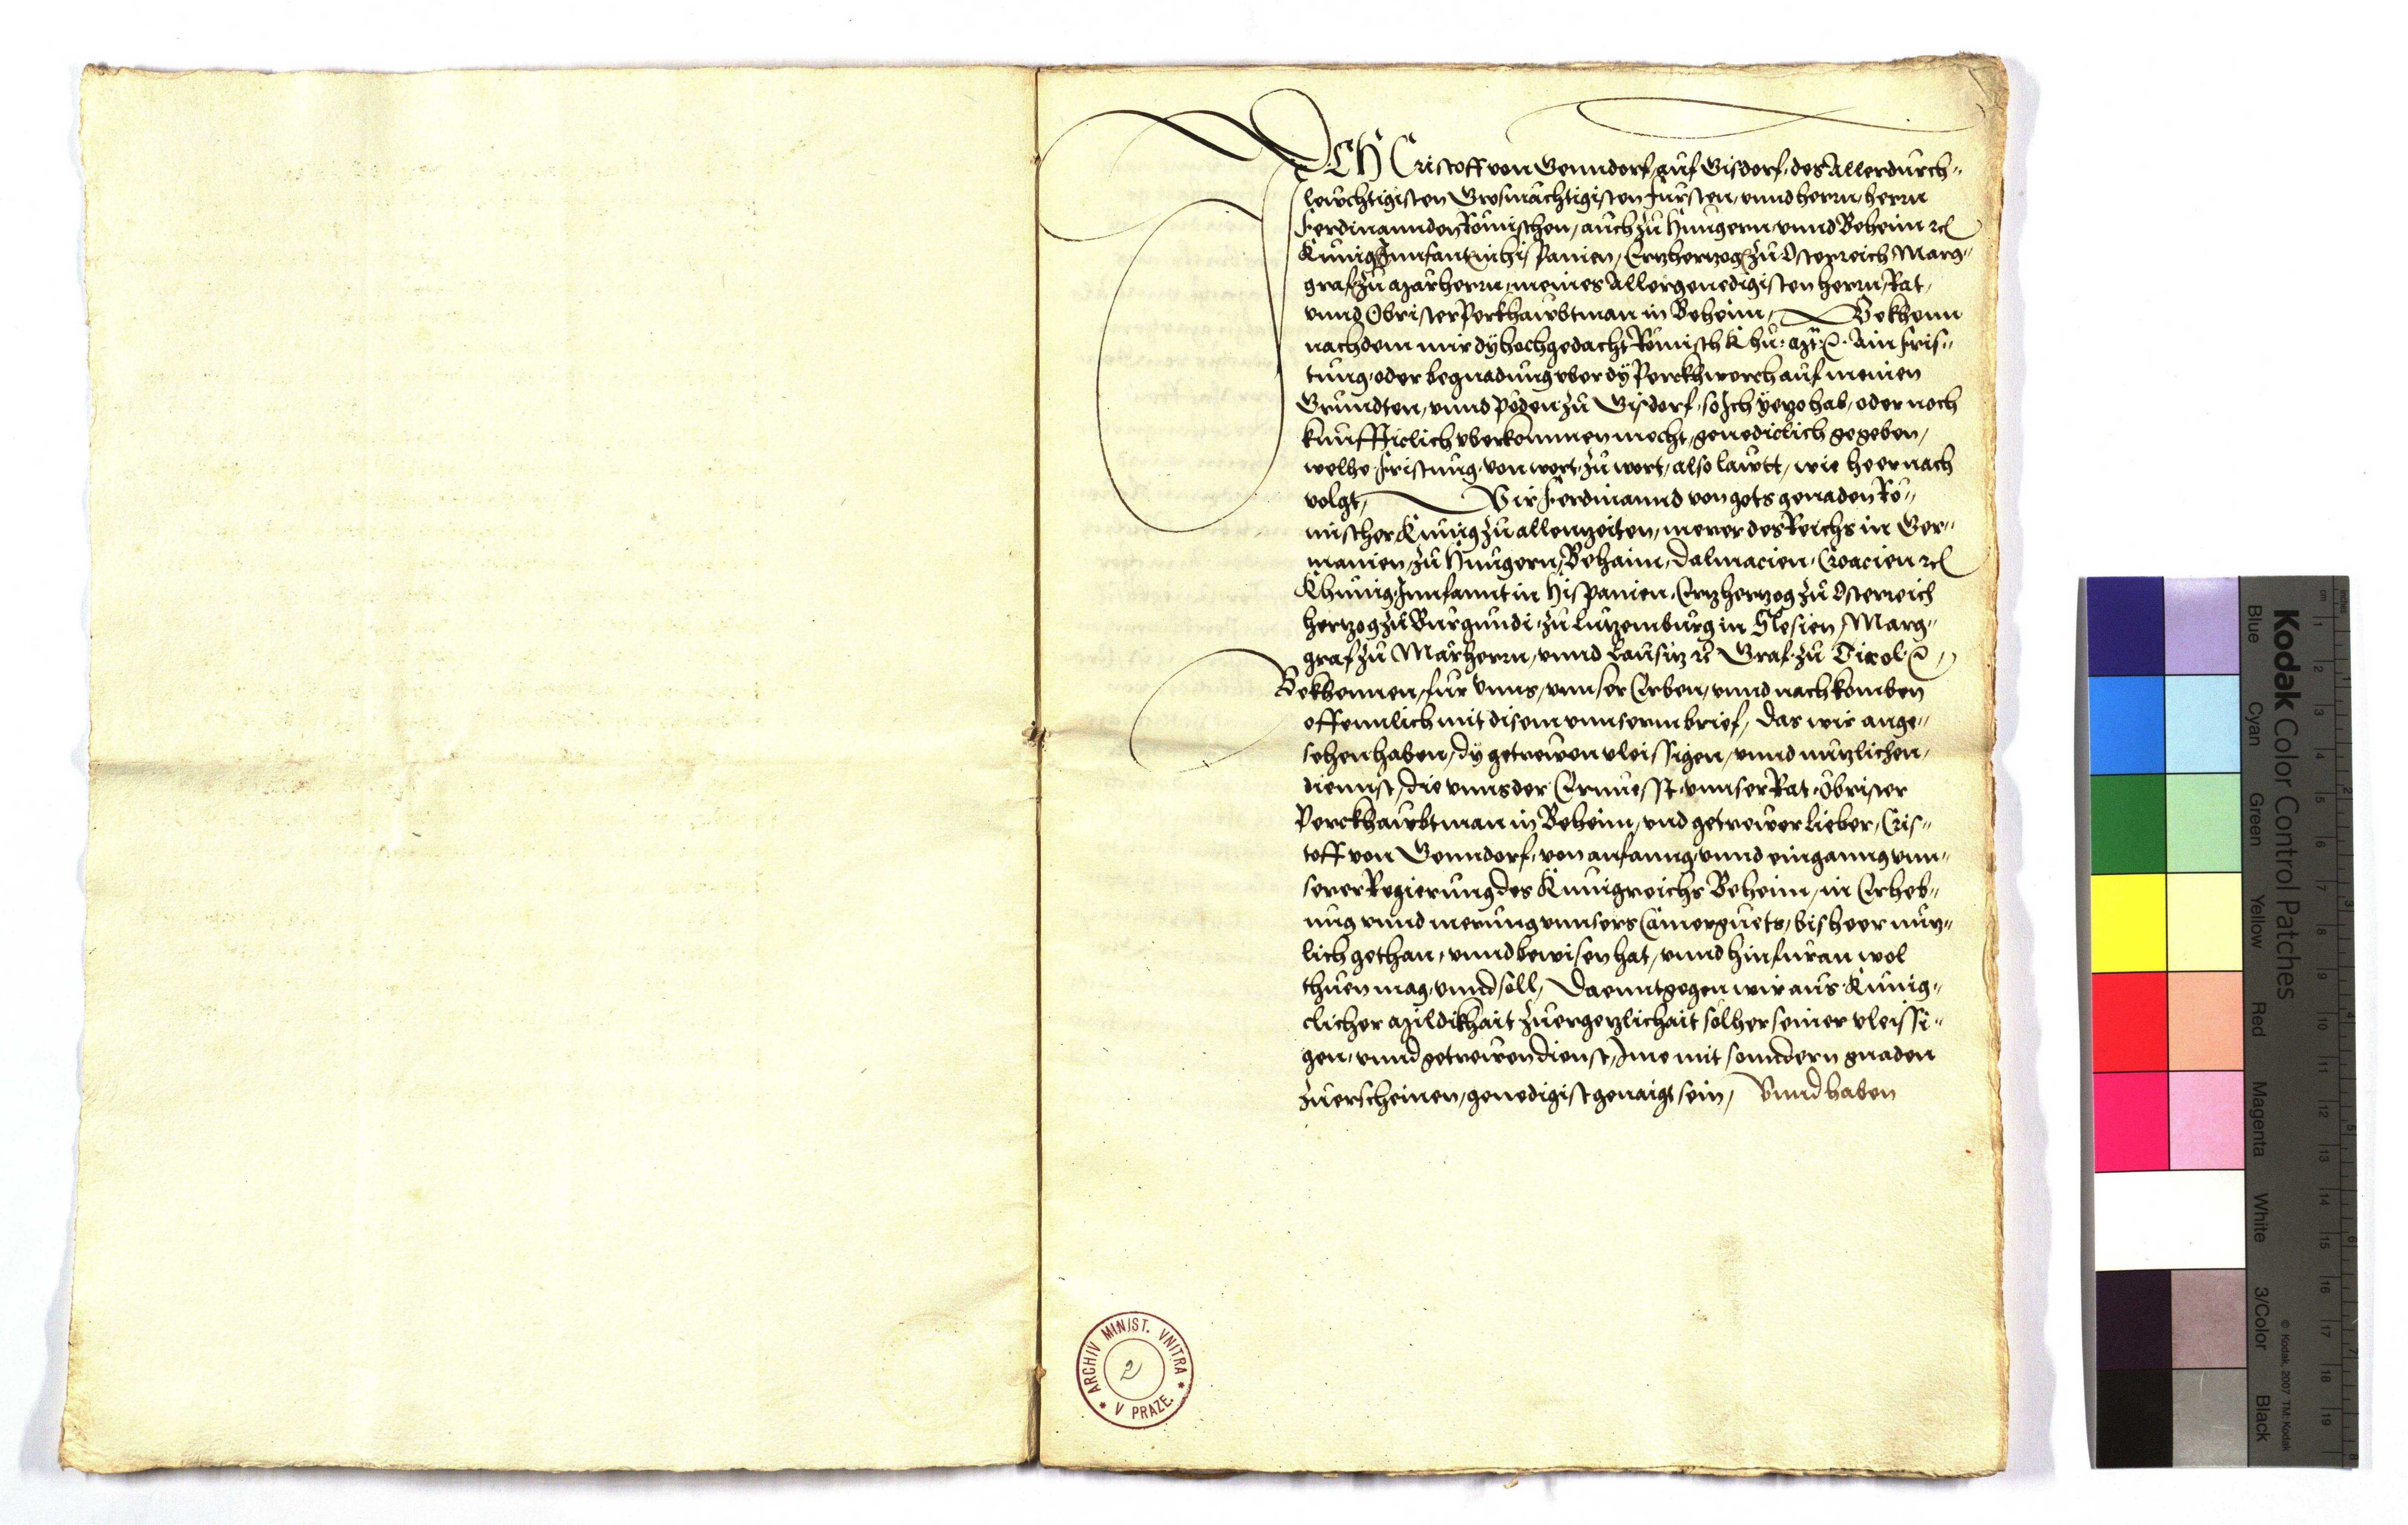 ICH Cristoff von Genndorf, auf Gisdorf, des Allerdurch-
lewchtigisten Grosmächtigisten Fürsten, vnnd herrn, herrn
Ferdinannden Römischen, auch zu Hungern, vnnd Beheim ꝛc
Künig, Innfant in hispanien, Ertzhertzog zu Osterreich, Marg-
graf zu Märherrn, meines Allergenedigisten herrn, Rat,
vnnd Obrister Perkhawbtman in Beheim, Bekhenn
nachdem mir dÿ hochgedacht Römisch Khü: Mt: ꝛc. Ain fris-
tung, oder begnadung vber dÿ Perckhwerch auf meinen
Grundten, vnnd pöden zu Gisdorf, so Ich ÿetzo hab, oder noch
künffticlich vberkommen mocht, genediclich gegeben,
welhe fristung, von wort, zu wort, also lawtt, wie heernach
volgt, Wir Ferdinannd von gots genaden Rö-
mischer Künig zu allen zeiten, merer des Reichs in Ger-
manien, zu Hungern, Behaim, Dalmacien, Croacien ꝛc
Khünig, Innfannt in Hispanien, Ertzhertzog zu Osterreich
hertzog zu Burgundi, zu Lutzemburg in Slesien, Marg-
graf zu Märherrn, vnnd Lausitz ꝛc Graf zu Tirol ꝛc,
Bekhennen, für vnns, vnnser Erben, vnnd nachkomben
offennlich mit disem vnnserm brief, das wir ange-
sehen haben, dÿ getrewen vleissigen, vnnd nutzlichen,
diennst, die vnns der Ernuesst, vnnser Rat, Obrister
Perckhawbtman in Beheim, vnd getrewer lieber, Cris-
toff von Genndorf, von anfanng, vnnd einganng vnn-
serer Regierung des Künigreichs Beheim, in Erheb-
ung vnnd merung vnnsers Camerguets, bisheer nutz-
lich gethan, vnnd bewisen hat, vnnd hinfuran wol
thuen mag, vnnd soll, Daenntgegen wir aus Künig-
clicher Mildikhait zu ergetzlichait solher seiner vleissi-
gen, vnnd getrewen dienst, Ime mit sonndern gnaden
zu erscheinen, genedigist genaigt sein, Vnnd haben
ARCHIV MINIST. VNITRA
* V PRAZE. *
2
Kodak Color Control Patches
Blue Cyan Green Yellow Red Magenta White 3/Color Black
© Kodak, 2007 TM: Kodak
inches 1 2 3 4 5 6 7 8
cm 1 2 3 4 5 6 7 8 9 10 11 12 13 14 15 16 17 18 19